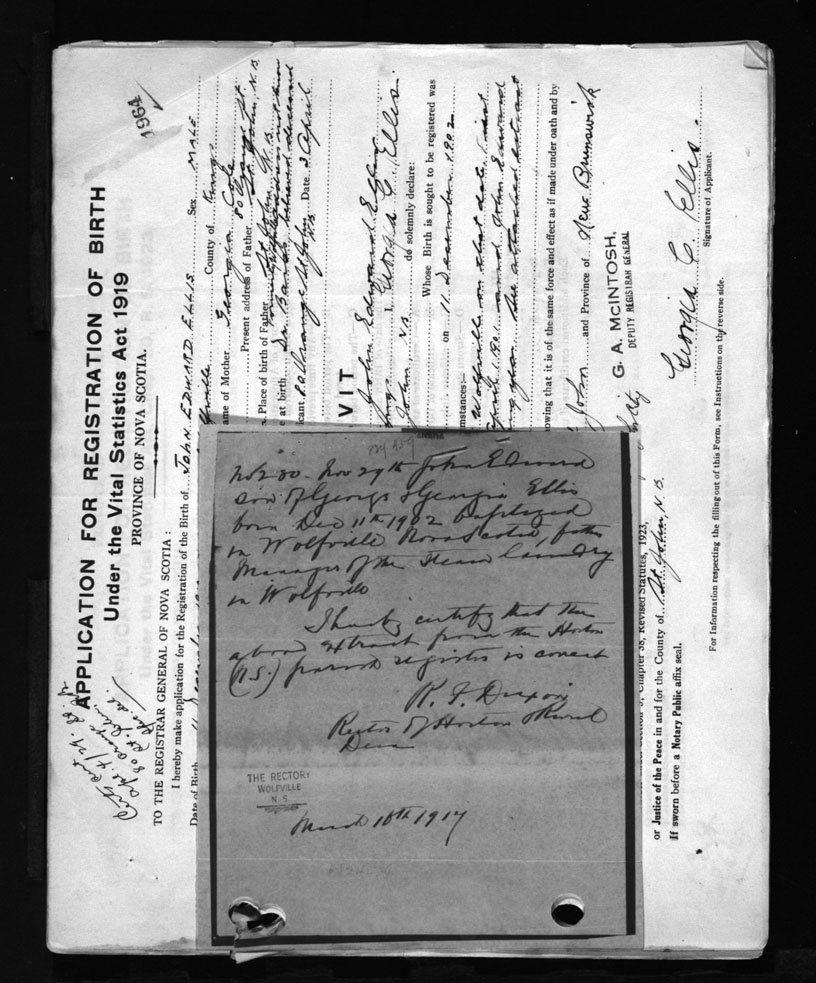 APPLICATION FOR REGISTRATION OF BIRTH
Under the Vital Statistics Act 1919
PROVINCE OF NOVA SCOTIA.
1964
TO THE REGISTRAR GENERAL OF NOVA SCOTIA:
I hereby make application for the Registration of the Birth of JOHN EDWARD ELLIS Sex MALE
Date of Birth 11 County of Kings
ame of Mother Georgia Cole
Present address of Father 80 Orange St.
St John, N.B.
Place of birth of Father St John N.B.
e at birth Dr. Barss, believed deceased
icant 80 Orange St John N.B. Date 3 April
VIT
John Edward Ellis
I Georgia C. Ellis
John N.B. do solemnly declare:
Whose Birth is sought to be registered was
on 11 December 1902
mstances:—
Wolfville on that date. I
John Edward
the attached
owing that it is of the same force and effect as if made under oath and by
John and Province of New Brunswick
G. A. McINTOSH,
DEPUTY REGISTRAR GENERAL
Georgia C. Ellis.
Signature of Applicant.
Chapter 38, Revised Statutes, 1923,
or Justice of the Peace in and for the County of St. John, N.B.
If sworn before a Notary Public affix seal.
For Information respecting the filling out of this Form, see Instructions on the reverse side.
No 280. Nov 29th John Edward
son of George & Georgia Ellis
born Dec 11th 1902 baptized
in Wolfville Nova Scotia, father
Manager of the Steam Laundry
in Wolfville
I hereby certify that the
above extract from the Horton
(N.S.) parish register is correct
R. F. Dixon
Rector of Horton & Rural
Dean
THE RECTORY
WOLFVILLE
N. S.
March 10th 1917